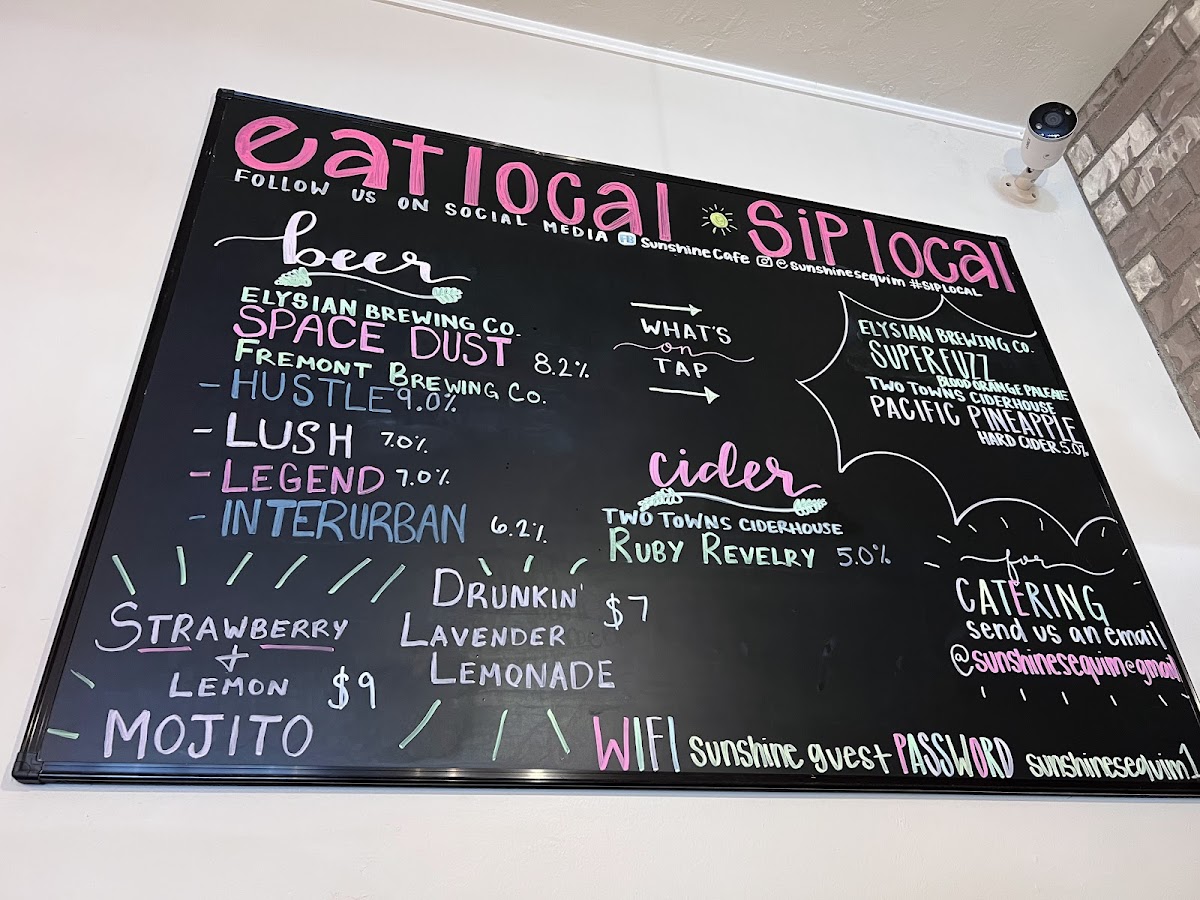 eat local * Sip local
FOLLOW US ON SOCIAL MEDIA FB Sunshine Cafe @sunshinesequim #SIPLOCAL
beer
ELYSIAN BREWING CO.
SPACE DUST 8.2%
FREMONT BREWING CO.
- HUSTLE 9.0%
- LUSH 7.0%
- LEGEND 7.0%
- INTERURBAN 6.2%
WHAT'S
on
TAP
ELYSIAN BREWING CO.
SUPERFUZZ
BLOOD ORANGE PALE ALE
TWO TOWNS CIDERHOUSE
PACIFIC PINEAPPLE
HARD CIDER 5.0%
cider
TWO TOWNS CIDERHOUSE
RUBY REVELRY 5.0%
STRAWBERRY
+
LEMON $9
MOJITO
DRUNKIN' $7
LAVENDER
LEMONADE
for
CATERING
send us an email
@sunshinesequim@gmail
WIFI sunshine guest PASSWORD sunshinesequim1